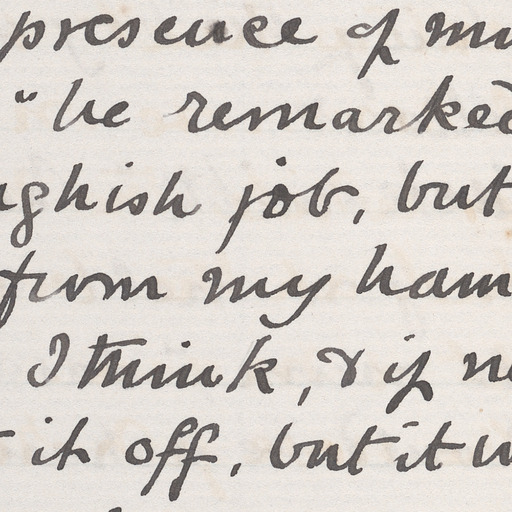 presence of
" he remarked
job, but
from my
I think, & if
it off, but it